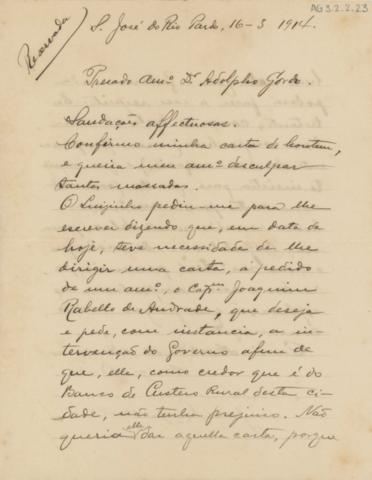 AG3.2.2.23
Reservada
S. José do Rio Pardo, 16-3 1914.
Presado Amº. Dr. Adolpho Gordo.
Saudações affectuosas.
Confirmo minha carta de hontem,
e queira meu amº desculpar
tantas massadas.
O Luizinho pediu-me para lhe
escrever dizendo que, em data de
hoje, teve necessidade de lhe
dirigir uma carta, a pedido
de um amº, o Capm Joaquim
Rabello de Andrade, que deseja
e pede, com instancia, a in-
tervenção do Governo afim de
que, elle, como credor que é do
Banco de Custeio Rural desta ci-
dade, não tenha prejuiso. Não
queria elle dar aquella carta, porque